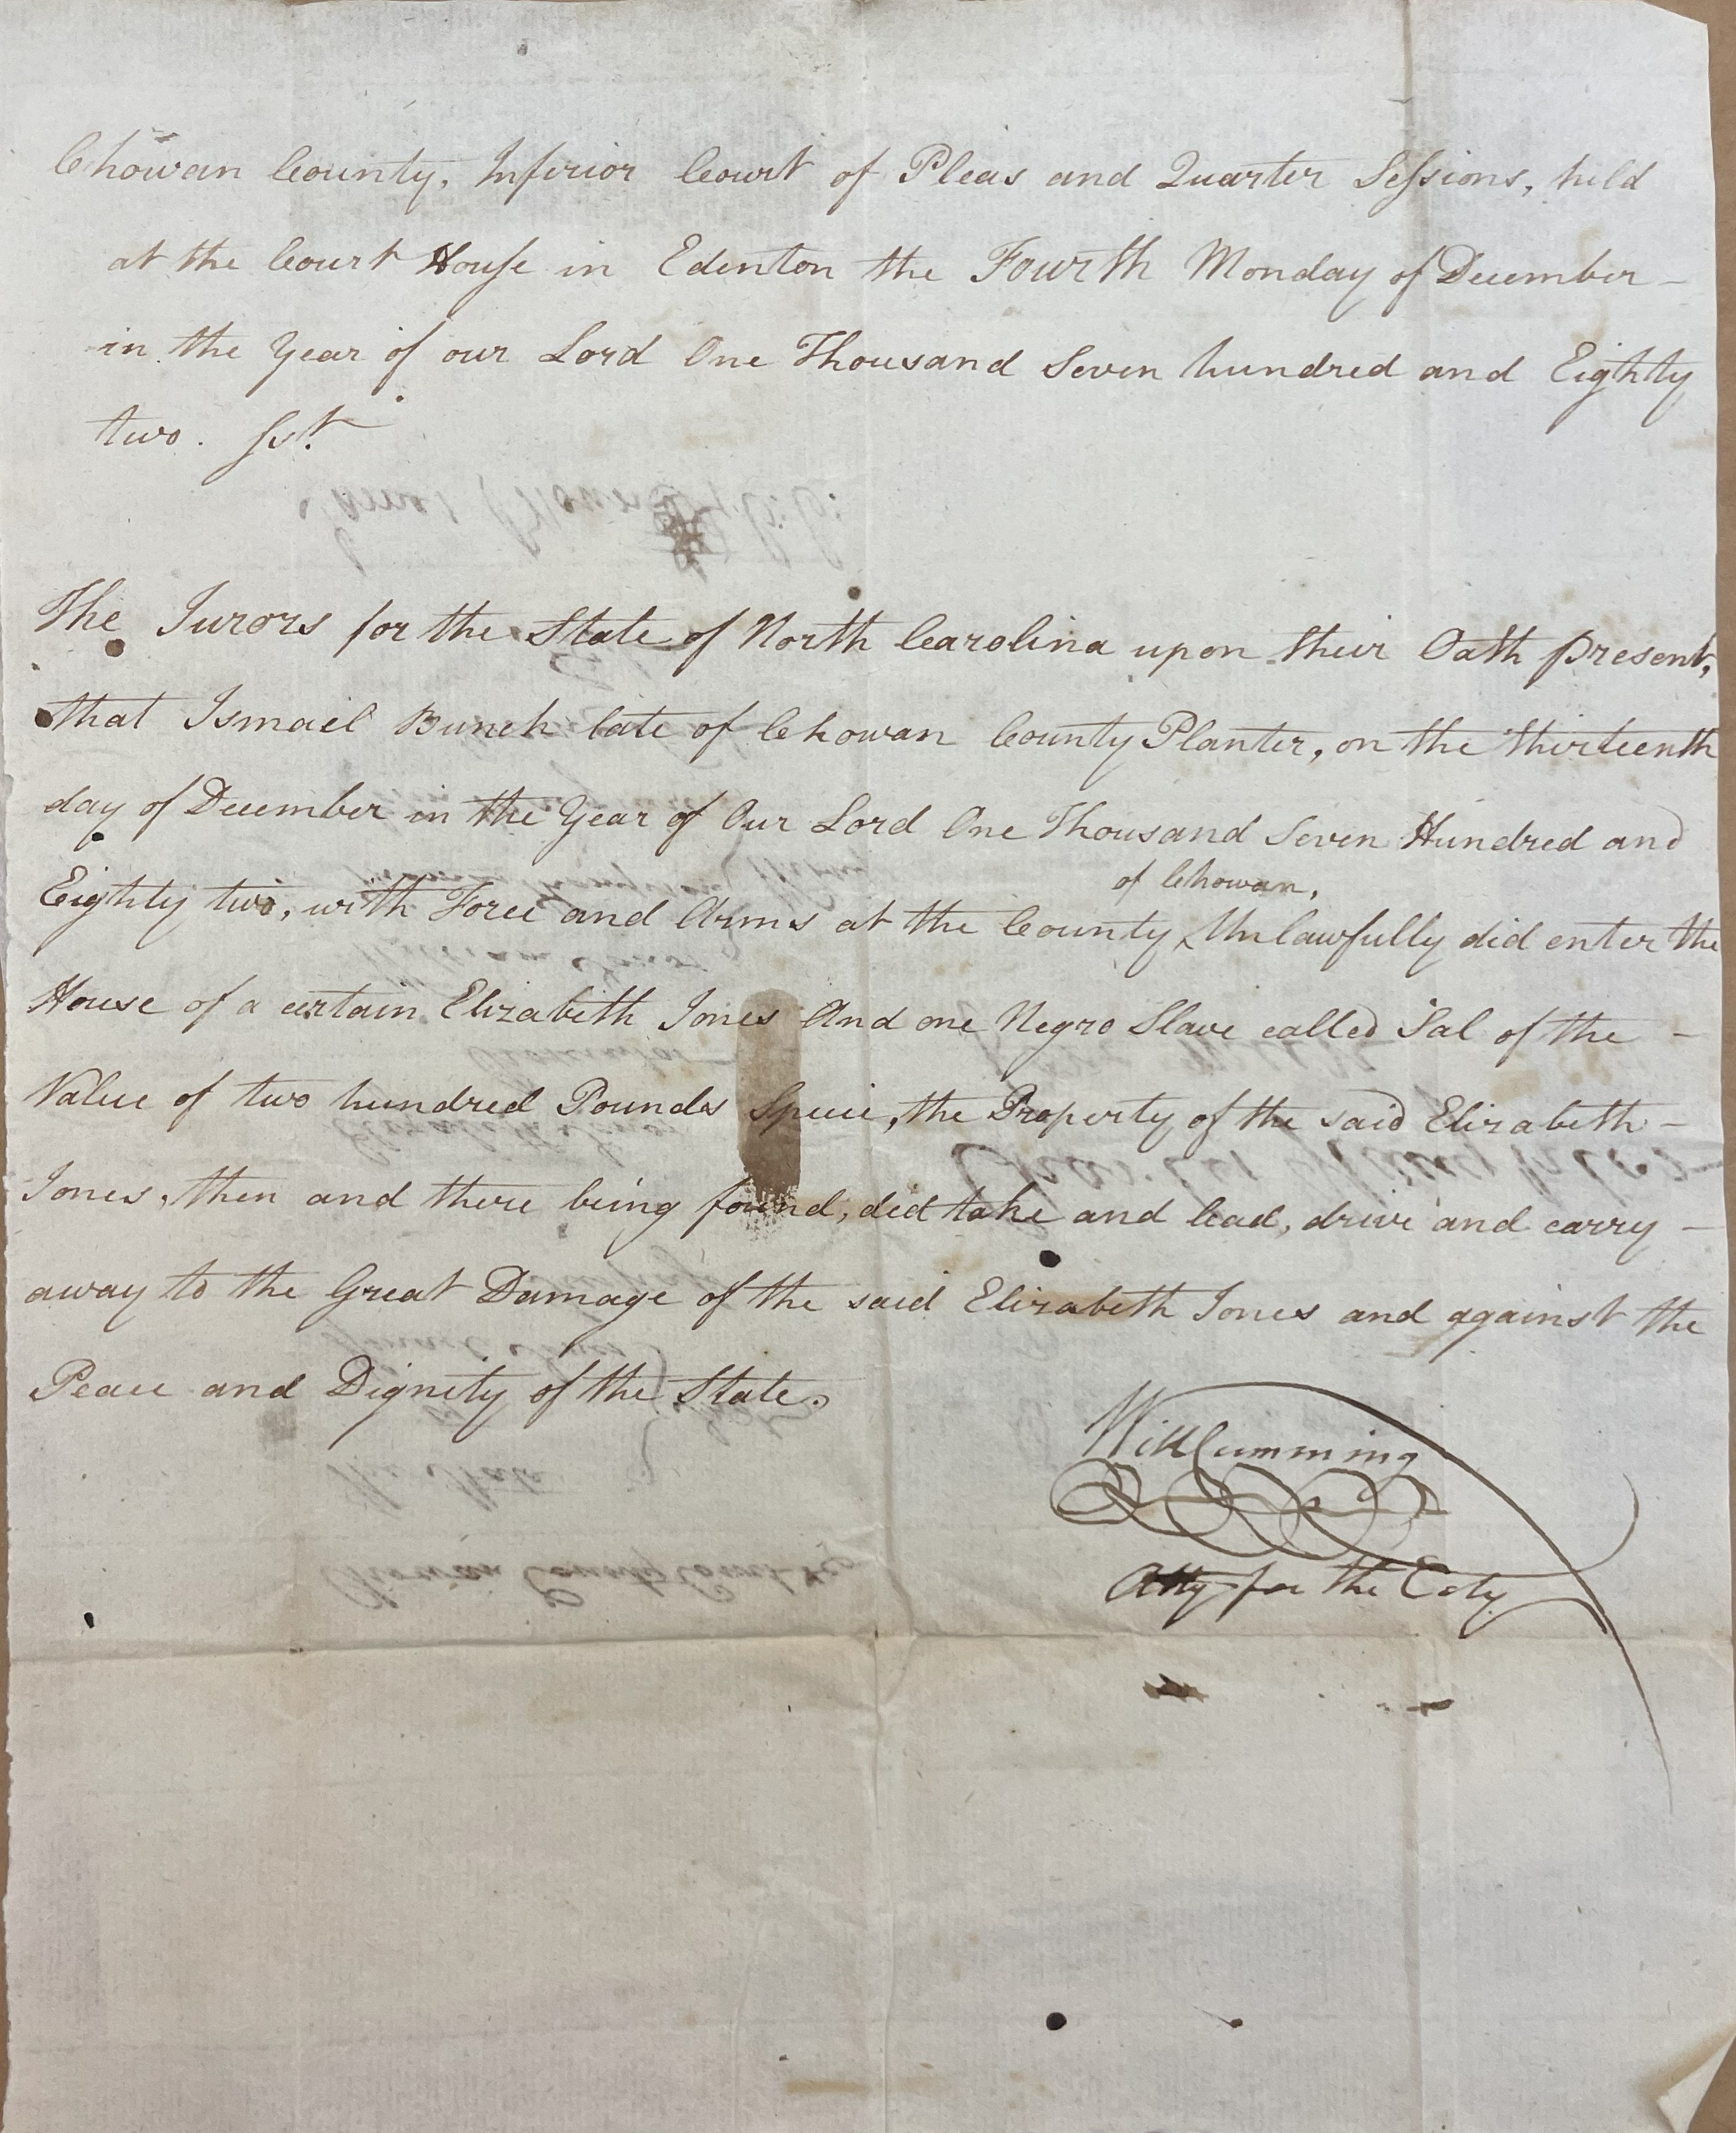 Chowan County, Inferior Court of Pleas and Quarter Sessions, held
at the Court House in Edenton the Fourth Monday of December –
in the Year of our Lord One Thousand Seven hundred and Eighty
two. Sst.
The Jurors for the State of North Carolina upon their Oath present,
that Ismael Bunch late of Chowan County Planter, on the thirteenth
day of December in the Year of Our Lord One Thousand Seven Hundred and
of Chowan,
Eighty two, with Force and Arms at the County ‸ Unlawfully did enter the
House of a certain Elizabeth Jones And one Negro Slave called Sal of the –
Value of two hundred Pounds Specie, the Property of the said Elizabeth –
Jones, then and there being found, did take and lead, drive and carry –
away to the Great Damage of the said Elizabeth Jones and against the
Peace and Dignity of the State.
Will Cumming
Atty for the Coty